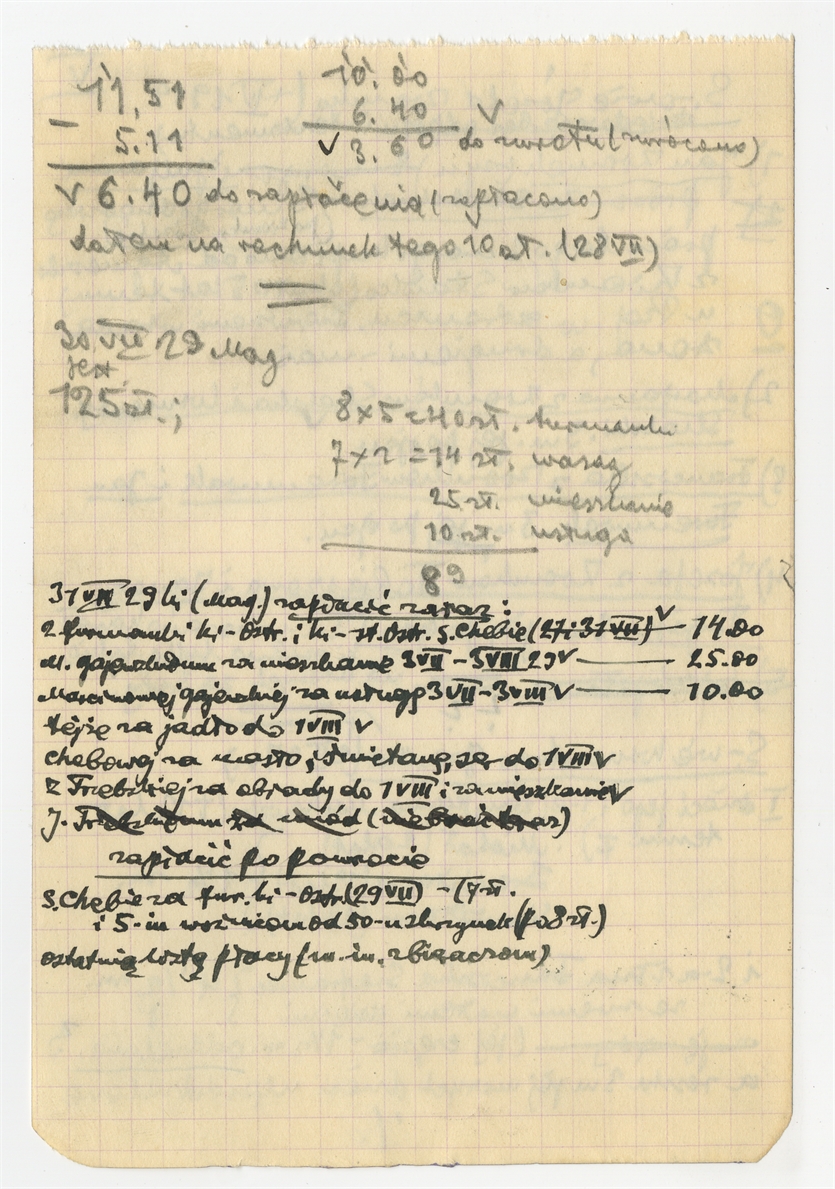 11,51
- 5.11
√ 6.40 do zapłacenia (zapłacono)
10.00
6.40 √
√ 3.60 do zwrotu (zwrócono)
dałem na rachunek tego 10 zł. (28 VII)
30 VII 29 Mag
jest
125 zł.;
8 x 5 = 40 zł. furmanki
7 x 2 = 14 zł.
25 zł. mieszkanie
10 zł. usługa
89
31 VII 29 ki (Mag.) zapłacić zaraz:
2 furmanki ki - Ostr. i ki - st. Ostr. S. Chebie (27 i 31 VII) √ — 14.00
M. Gajewskdum za mieszkanie 3 VII - 3 VIII 29 √ — 25.00
Marcinowej Gajewskiej za usługę 3 VII - 3 VIII √ — 10.00
tejże za jadło do 1 VIII √
Chebowej za masło, śmietanę, ser do 1 VIII √
Z Trębskiej za obiady do 1 VIII i za mieszkanie √
J. Trębskdum za miód (nie brać teraz)
zapłacić po powrocie
S. Chebie za fur. ki - Ostr. (29 VII) - (7 zł.
i 5-iu woźnicom od 50-u skrzynek (po 8 zł.)
ostatnią listę płacy (m. in. zbieraczom)